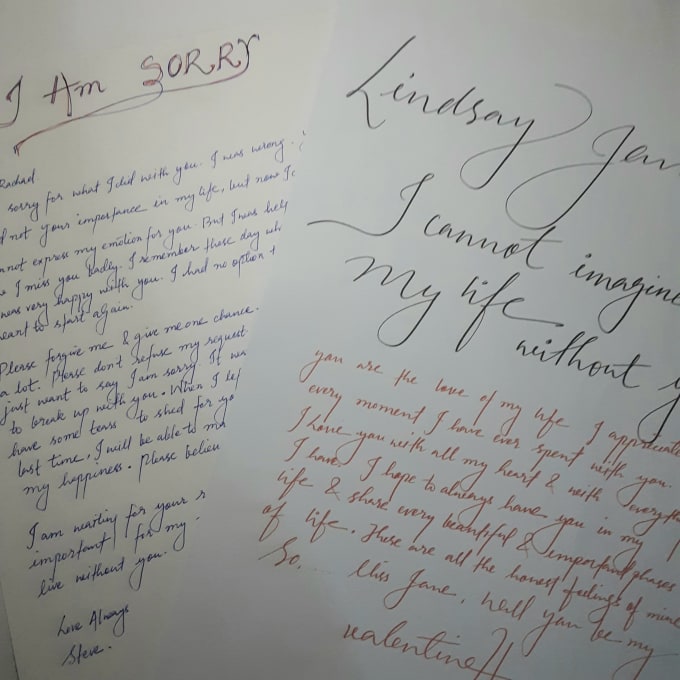 I Am SORRY
Rachael
sorry for what I did with you. I was wrong.
not your importance in my life, but now I
not express my emotion for you. But I was help
I miss you badly. I remember those day wh
was very happy with you. I had no option t
want to start again.
Please forgive me & give me one chance.
a lot. Please don't refuse my request
just want to say I am sorry. It wa
to break up with you. When I lef
have some tears to shed for yo
last time. I will be able to ma
my happiness. Please believ
I am waiting for your r
important for my
live without you.
Love Always
Steve.
Lindsay Jan
I cannot imagine
My life
without y
you are the love of my life I appreciate
every moment I have ever spent with you.
I love you with all my heart & with everyth
I have. I hope to always have you in my
life & share every beautiful & important phases
of life. These are all the honest feelings of mine
So.... Miss Jane, will you be my
valentine!!